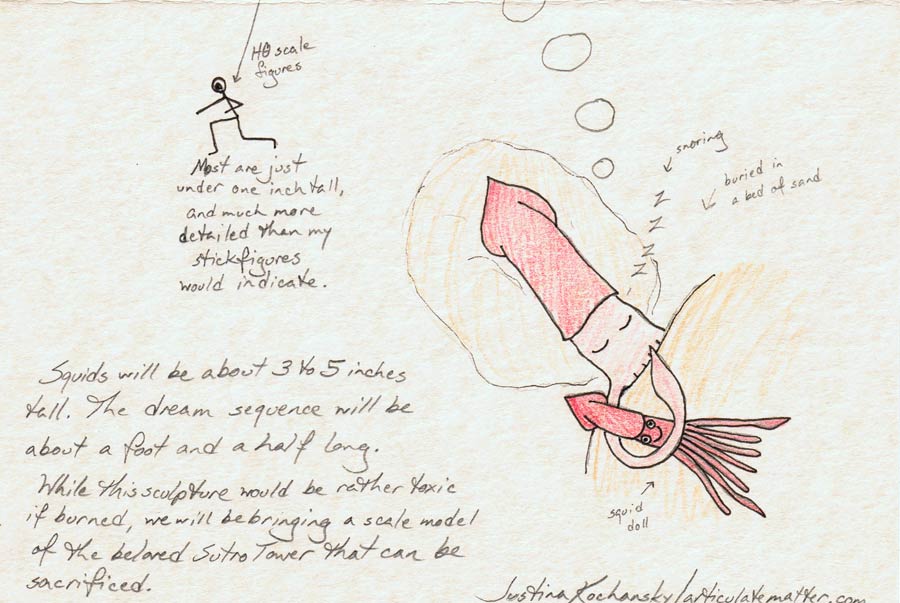 HO scale
figures
Most are just
under one inch tall,
and much more
detailed than my
stickfigures
would indicate.
snoring
buried in
a bed of sand
Z
Z
Z
Z
Z
Z
Squids will be about 3 to 5 inches
tall. The dream sequence will be
about a foot and a half long.
While this sculpture would be rather toxic
if burned, we will be bringing a scale model
of the beloved Sutro Tower that can be
sacrificed.
squid
doll
Justina Kochansky/articulatematter.com